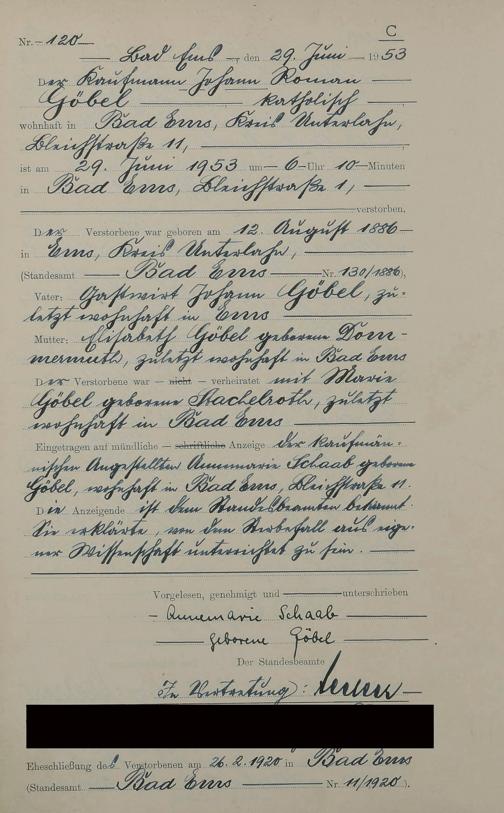 C
Nr. 120
Bad Ems, den 29. Juni 1953
Der Kaufmann Johann Roman
Göbel katholisch
wohnhaft in Bad Ems, Kreis Unterlahn,
Bleichstraße 11,
ist am 29. Juni 1953 um 6 Uhr 10 Minuten
in Bad Ems, Bleichstraße 1,
verstorben.
Der Verstorbene war geboren am 12. August 1886
in Ems, Kreis Unterlahn,
(Standesamt Bad Ems Nr. 130/1886),
Vater: Gastwirt Johann Göbel, zu-
letzt wohnhaft in Ems
Mutter: Elisabeth Göbel geborene Dom-
mermuth, zuletzt wohnhaft in Bad Ems
Der Verstorbene war — nicht — verheiratet mit Marie
Göbel geborene Stachelroth, zuletzt
wohnhaft in Bad Ems
Eingetragen auf mündliche — schriftliche Anzeige der kaufmän-
nischen Angestellten Annemarie Schaab geborene
Göbel, wohnhaft in Bad Ems, Bleichstraße 11.
Die Anzeigende ist dem Standesbeamten bekannt.
Sie erklärte, von dem Sterbefall aus eige-
ner Wissenschaft unterrichtet zu sein.
Vorgelesen, genehmigt und unterschrieben
Annemarie Schaab
geborene Göbel
Der Standesbeamte
In Vertretung:
Eheschließung des Verstorbenen am 26.2.1920 in Bad Ems
(Standesamt Bad Ems Nr. 11/1920).